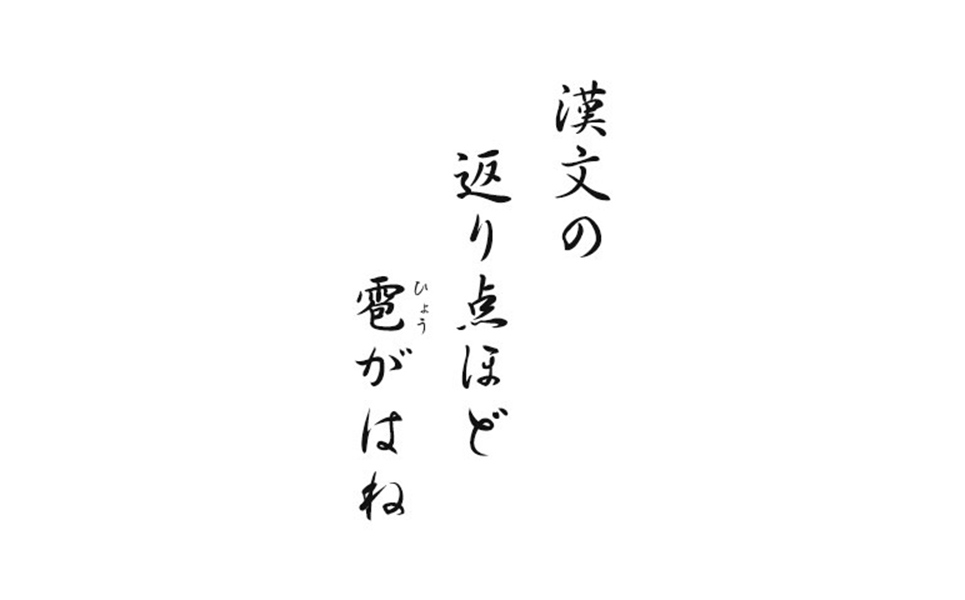 漢文の
返り点ほど
雹がはね
ひょう